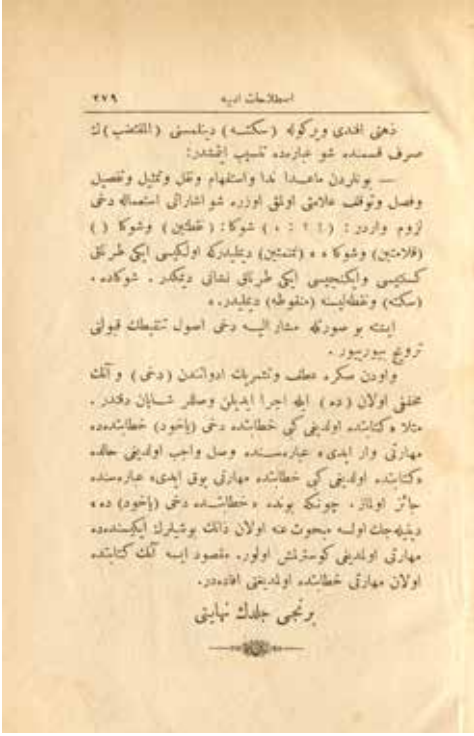 اصطلاحات ادبیه ٢٧٩
ذهنی افندی ویرکوله (سکته) دینلمسنی (المقتضب) ك
صرف قسمنده شو عبارەده تنسیب ایتمشدر:
— بونلردن ماعدا ندا واستفهام ونقل وتمثیل وتفصیل
وفصل وتوقف علامتی اولمق اوزره شو اشاراتی استعماله دخی
لزوم واردر: (! ؟ : ،) شوکا: (نقطتین) وشوکا ( )
(قلامتین) وشوکا « » (ثمتین) دینلیدرکه اولکیسی ایکی طرناق
کسنتیسی وایکنجیسی ایکی طرناق نشانی دیمکدر. شوکاده ،
(سکته) ونقطه‌لیسنه (منقوطه) دینلیدر. »
ایشته بو صورتله مشار الیه دخی اصول تنقیطك قبولنی
ترویج بیوریبور .
واودن سکره عطف وتشریك ادواتندن (دخی) و آنك
مخففی اولان (ده) ایله اجرا ایدیلن وصللر شایان دقتدر .
مثلا «کتابتده اولدیغی کبی خطابتده دخی (یاخود) خطابتده‌ده
مهارتی وار ایدی» عباره‌سنده وصل واجب اولدیغی حالده
«کتابتده اولدیغی کبی خطابتده مهارتی یوق ایدی» عباره‌سنده
جائز اولماز ، چونکه بونده «خطابتده دخی (یاخود) ده»
دینیله‌جك اولسه مبحوث عنه اولان ذاتك بوشیلرك ایکیسنده‌ده
مهارتی اولمدیغی کوسترلمش اولور. مقصود ایسه آنك کتابتده
اولان مهارتی خطابتده اولمدیغنی افاده‌در.
برنجی جلدك نهایتی